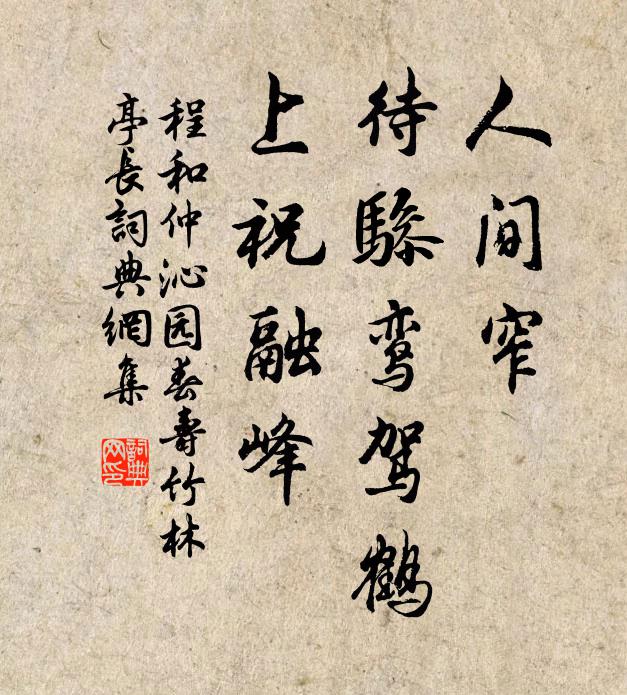 人间窄
待骖鸾驾鹤
上祝融峰
程和仲沁园春寿竹林
亭长詞典網集
詞典网印